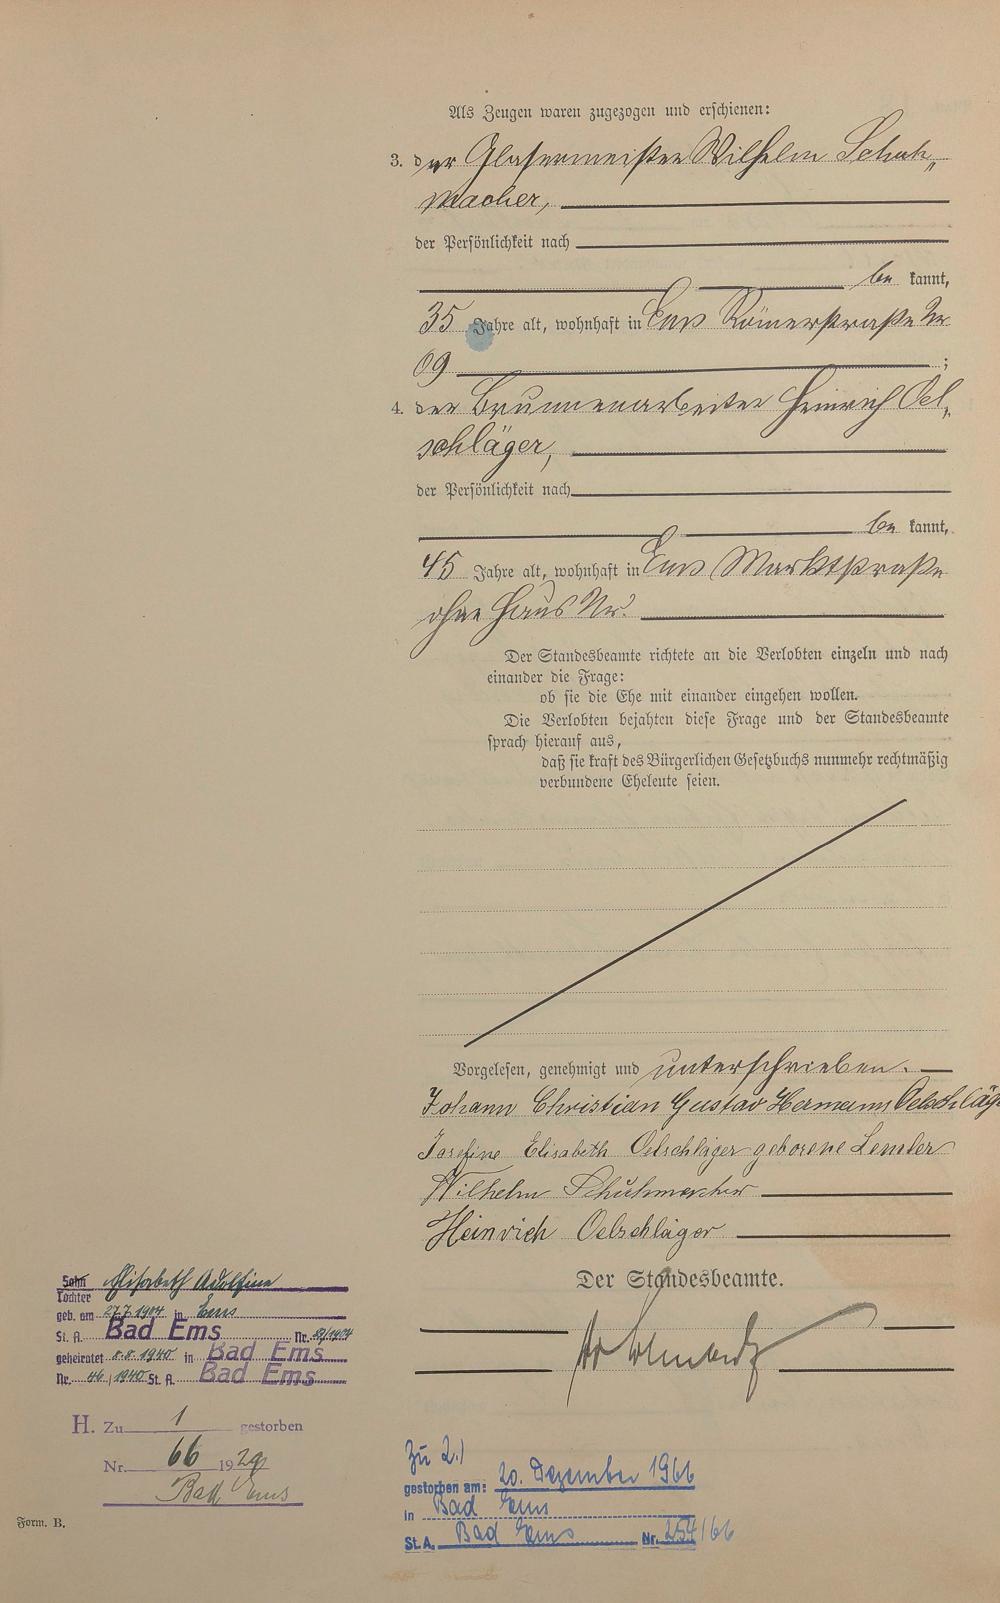 Als Zeugen waren zugezogen und erschienen:
3. der Glasermeister Wilhelm Schuh„
macher,
der Persönlichkeit nach
be kannt,
35 Jahre alt, wohnhaft in Ems Römerstraße Nr
69 ;
4. der Brunnenarbeiter Heinrich Oel„
schläger,
der Persönlichkeit nach
be kannt,
45 Jahre alt, wohnhaft in Ems Marktstraße
ohne Haus Nr.
Der Standesbeamte richtete an die Verlobten einzeln und nach
einander die Frage:
ob sie die Ehe mit einander eingehen wollen.
Die Verlobten bejahten diese Frage und der Standesbeamte
sprach hierauf aus,
daß sie kraft des Bürgerlichen Gesetzbuchs nunmehr rechtmäßig
verbundene Eheleute seien.
Vorgelesen, genehmigt und unterschrieben.
Johann Christian Gustav Hermann Oelschläg
Josefine Elisabeth Oelschläger geborene Lemler
Wilhelm Schuhmacher
Heinrich Oelschläger
Der Standesbeamte.
Sohn Elisabeth Adolfine
Tochter
geb. am 27.7.1904 in Ems
St. A. Bad Ems Nr. /1904
geheiratet 8.8.1940 in Bad Ems
Nr. 46/1940 St. A. Bad Ems
H. Zu 1 gestorben
Nr. 66 1929
Bad Ems
Form. B.
Zu 2.)
gestorben am: 20. Dezember 1966
in Bad Ems
St. A. Bad Ems Nr. 254/66